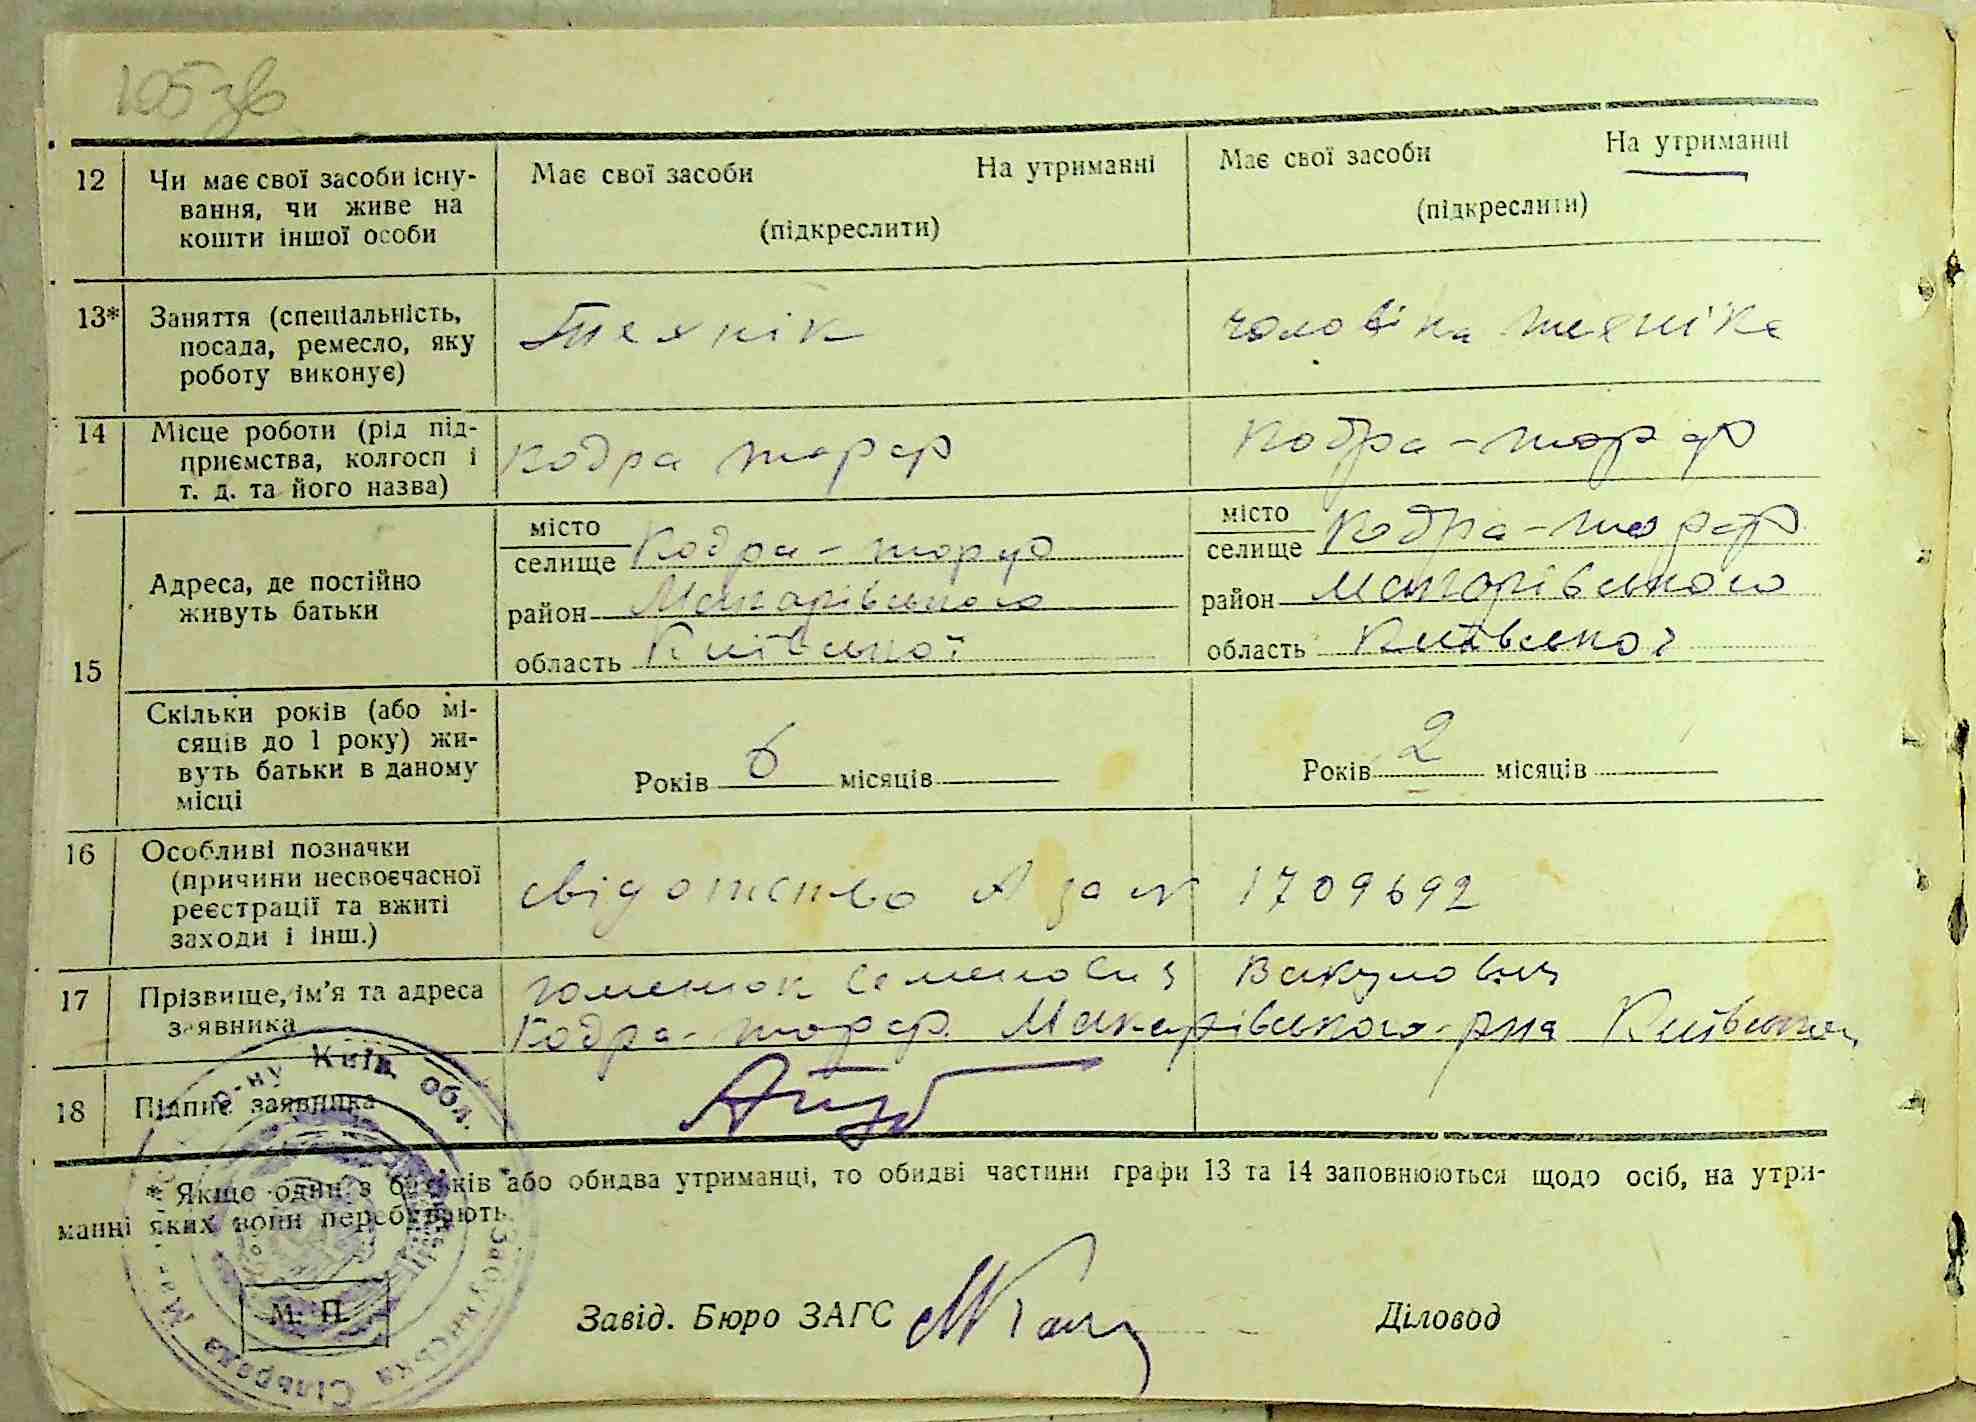 105зв
12 Чи має свої засоби існу- Має свої засоби На утриманні Має свої засоби На утриманні
вання, чи живе на
кошти іншої особи (підкреслити) (підкреслити)
13* Заняття (спеціальність,
посада, ремесло, яку Технік чоловіка техніка
роботу виконує)
14 Місце роботи (рід під-
приємства, колгосп і Кодра торф Кодра-торф
т. д. та його назва)
15 Адреса, де постійно
живуть батьки
місто
селище Кодра-торф
район Макарівського
область Київської
місто
селище Кодра-торф
район Макарівського
область Київської
Скільки років (або мі-
сяців до 1 року) жи-
вуть батьки в даному
місці
Років 6 місяців
Років 2 місяців
16 Особливі позначки
(причини несвоєчасної
реєстрації та вжиті
заходи і інш.)
свідотство А за № 1709692
17 Прізвище, ім'я та адреса
заявника
Семенович Вакулович
Кодра-торф Макарівського р-на Київської
18 Підпис заявника
* Якщо один з батьків або обидва утриманці, то обидві частини графи 13 та 14 заповнюються щодо осіб, на утри-
манні яких вони перебувають.
М. П.
Завід. Бюро ЗАГС Діловод
р-ну Київ. обл.
Сільрада